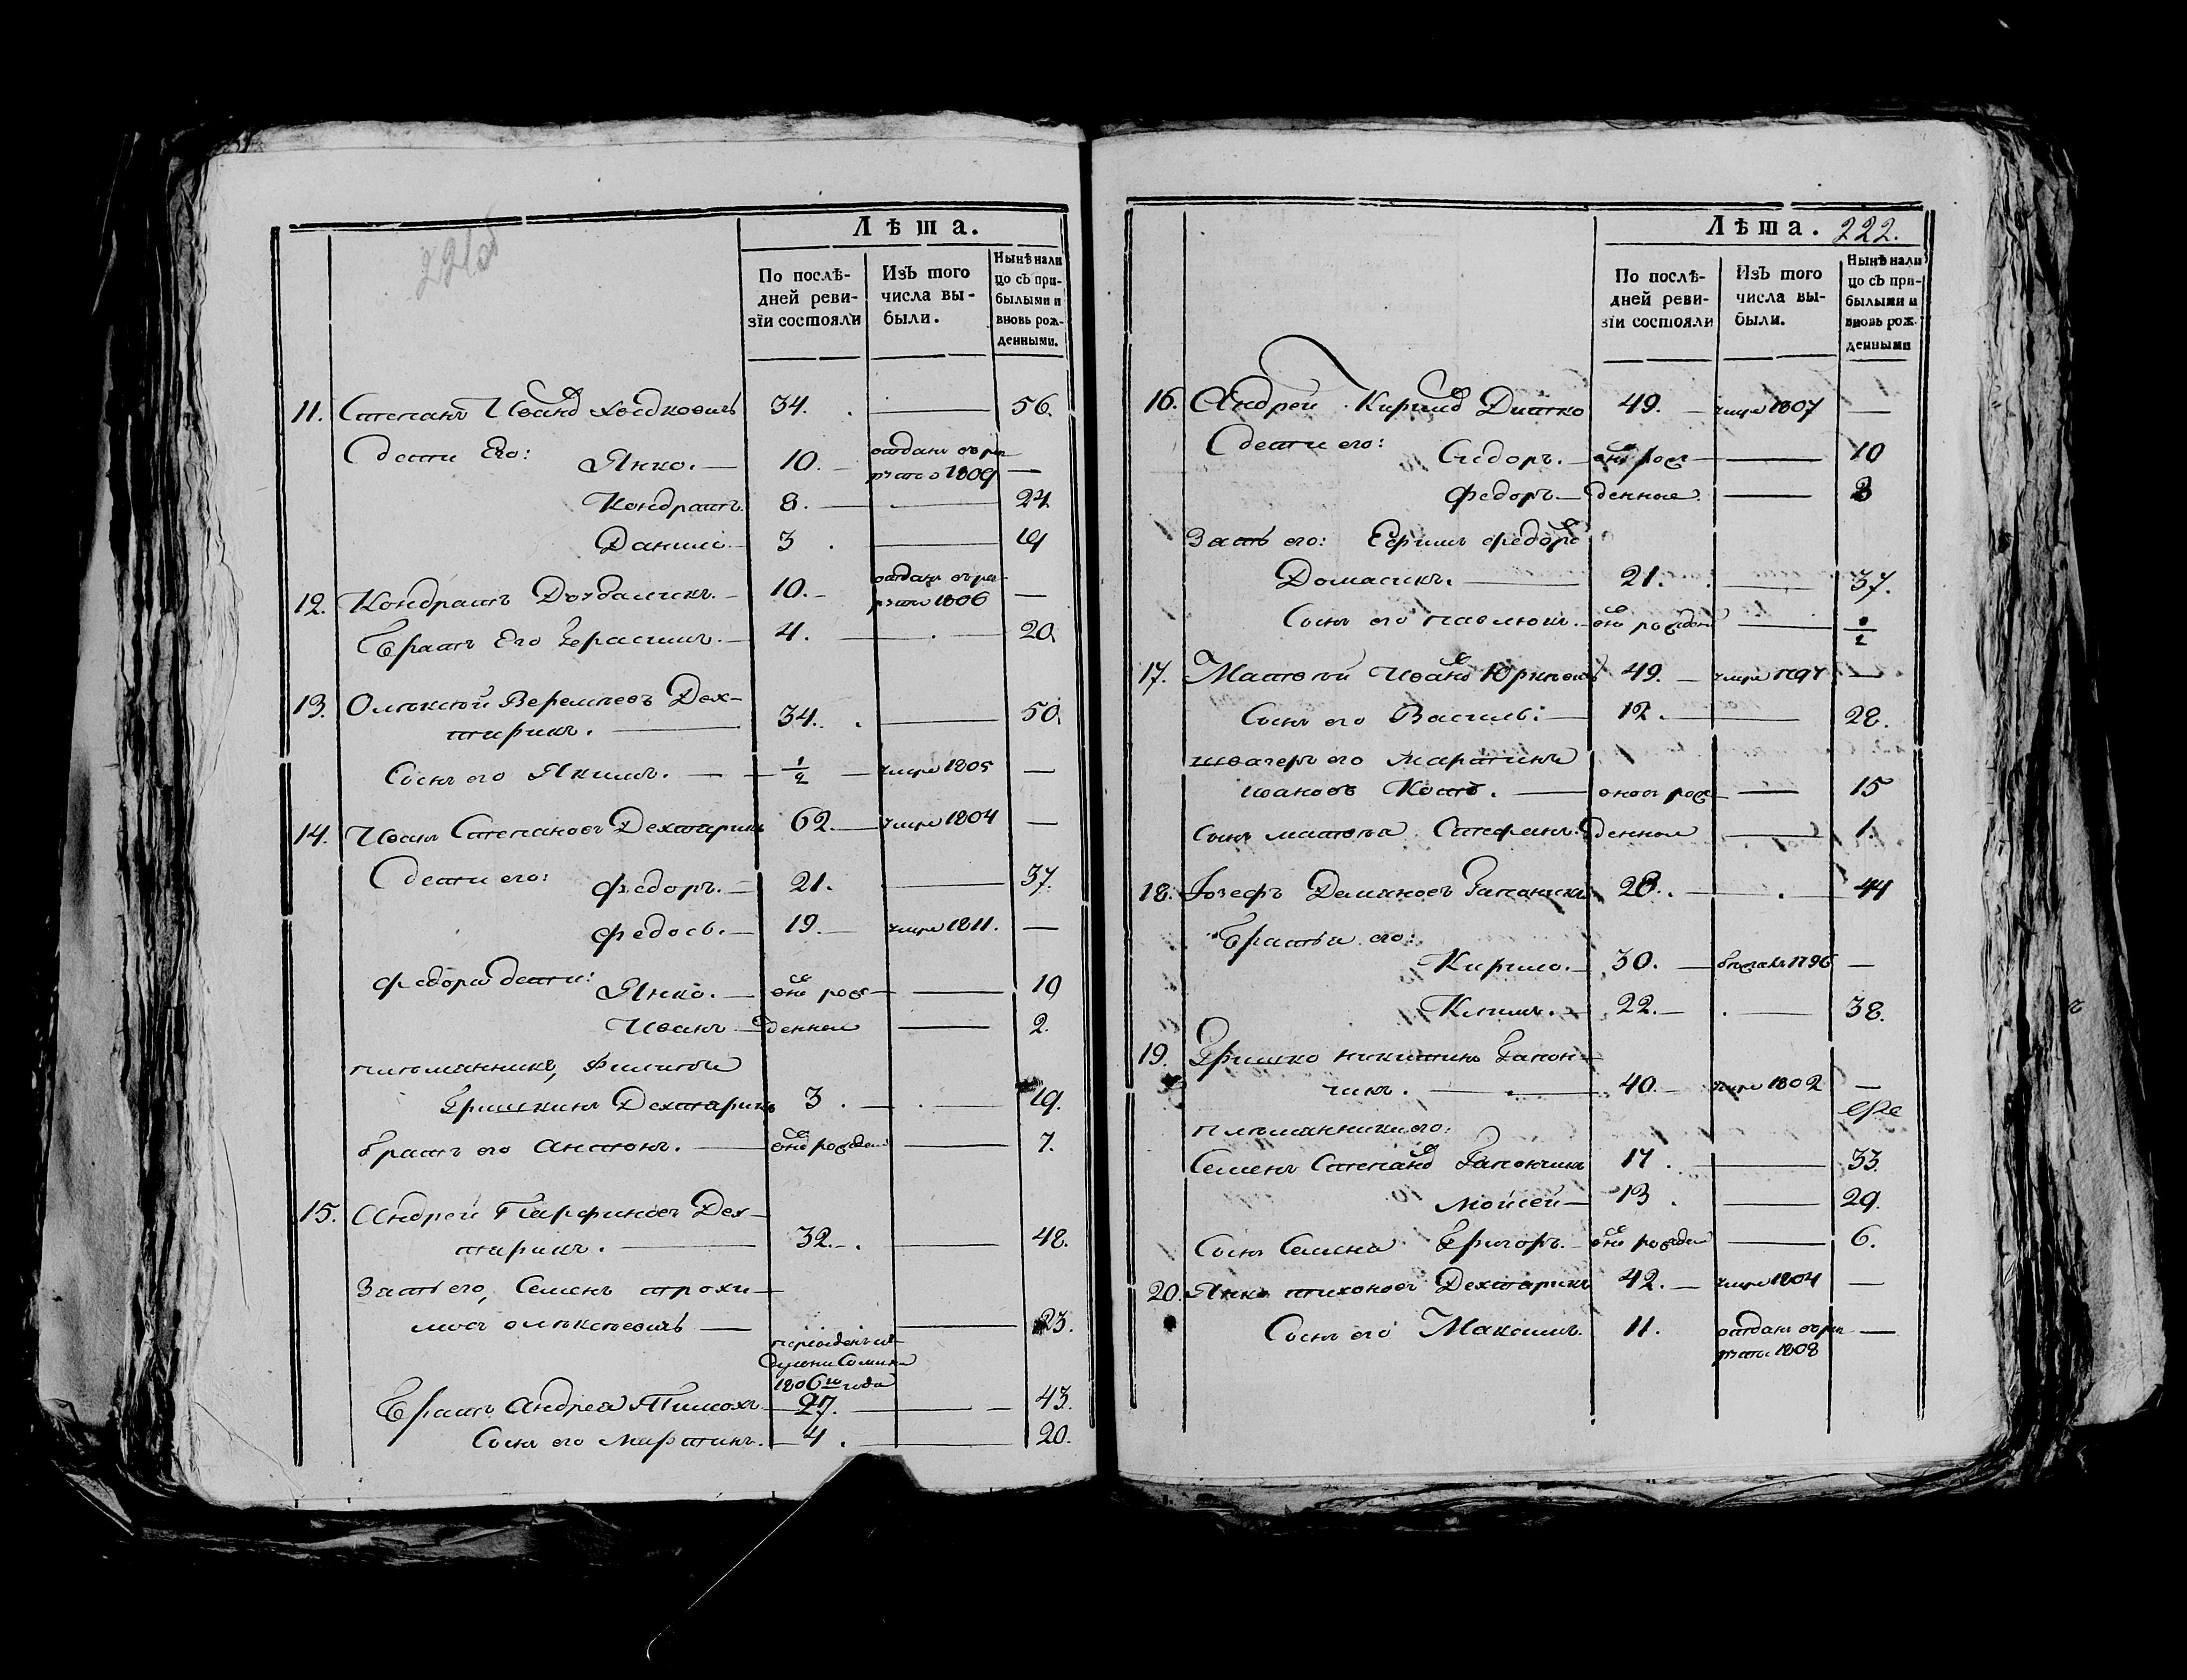 221об
Лѣта.
По послѣ-
дней реви-
зїи состояли
Изъ того
числа вы-
были.
Нынѣ нали
цо съ при-
былыми и
вновь рож-
денными.
11. Степанъ Иванов 34. 56.
Дети Его: Янко. 10. отданъ въ ре-
круты 1809
Кондратъ 8. 24
Данило 3 19
12. Кондратъ 10. отданъ въ ре-
круты 1806
Братъ Его Герасимъ. 4. 20.
13. Олексей Веремеевъ Дех-
тярикъ. 34. 50.
Сынъ его Якимъ. 1/2 умре 1805
14. Иванъ Степановъ Дехтярикъ 62. умре 1804
Дети его: Федоръ. 21. 37.
Федось. 19. умре 1811.
Федора дети: Янко. внов рож 10
Иванъ денные 2.
племянникъ, Филипъ
Гришкинъ Дехтярикъ 3. 19.
братъ его Антонъ. внов рожден 7.
15. Андрей Парфиновъ Дех-
тярикъ. 32. 48.
Зять его, Семенъ Трохи-
мовъ Олексеевичъ 23.
1806го года
Братъ Андрея Тимохъ 27. 43.
Сынъ его Мартинъ. 4. 20.
Лѣта. 222.
По послѣ-
дней реви-
зїи состояли
Изъ того
числа вы-
были.
Нынѣ нали
цо съ при-
былыми и
вновь рож-
денными
16. Андрей Кирилов Дитко 49. умре 1807
Дети его: Сидоръ. внов рож 10
Федоръ. денные 3
Зять его: Ефимъ Федоров
Домасикъ. 21. 37.
Сынъ его Павлюкъ. внов рожден 1/2
17. Матвей Иванов 49. умре 1797
Сынъ его Василь: 12. 28.
швагеръ его Мартинъ
Ивановъ вновь рож 15
Сынъ Матвея Стефанъ. денные 1.
18. Іозефъ Демяновъ Гапончикъ 28. 44
Братья его:
Кирило. 30. бежалъ 1796
Климъ. 22. 38.
19. Гришко Никитинъ Гапон-
чикъ. 40. умре 1802
племянники его:
Семенъ Степанов Гапончикъ 17. 33.
Мойсей 13. 29.
Сынъ Семена Григоръ. внов рожден 6.
20. Янко Тихоновъ Дехтярикъ 42. умре 1804
Сынъ его Максимъ. 11. отданъ въ ре-
круты 1808